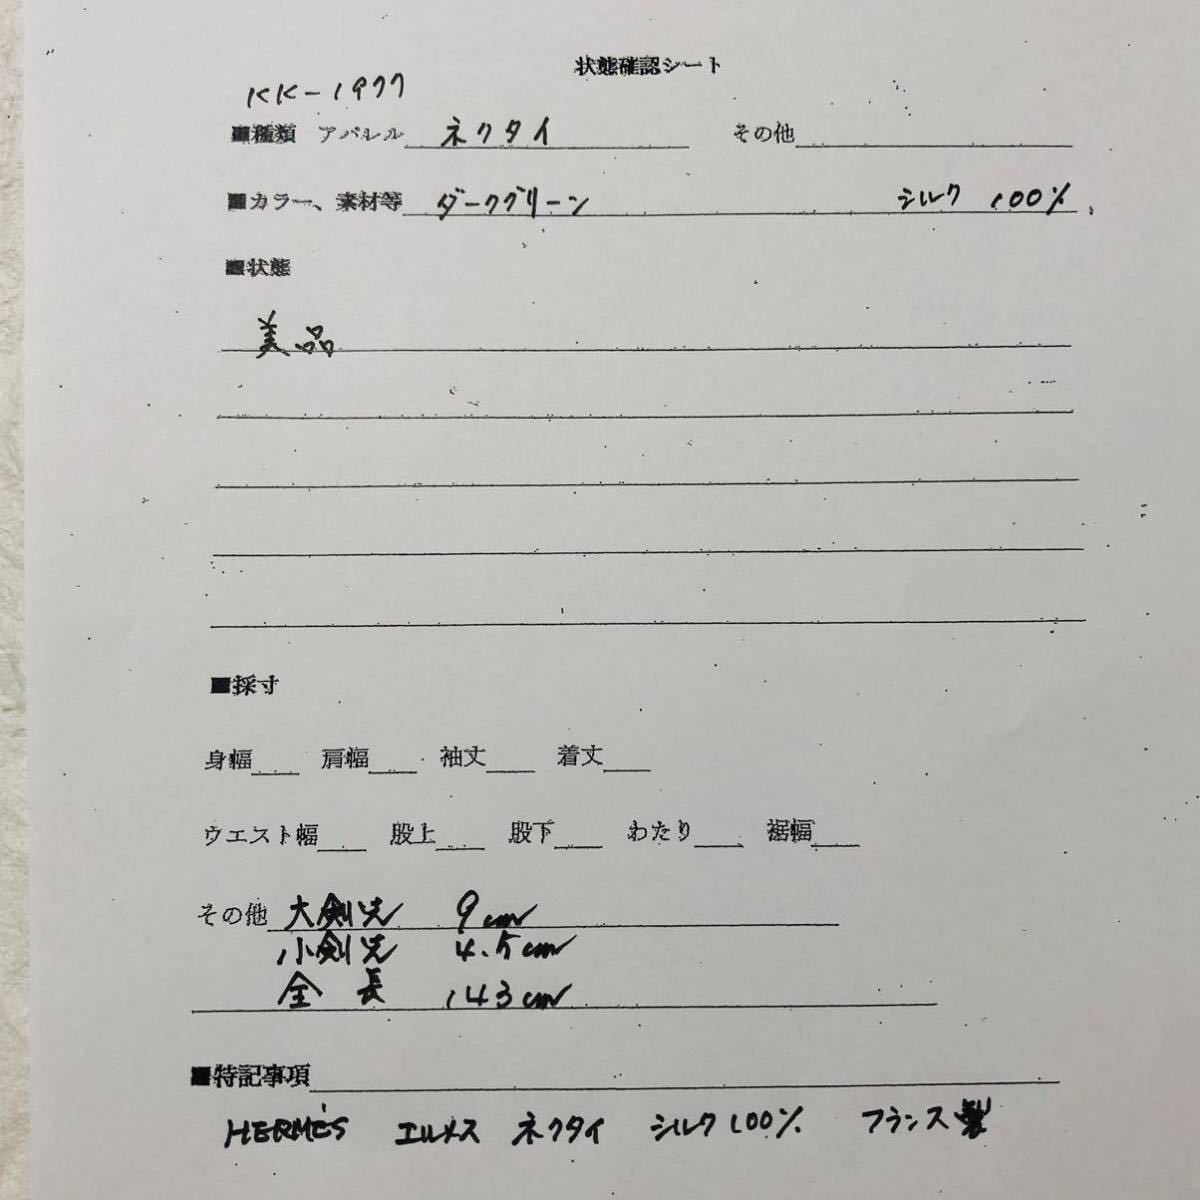 状態確認シート
KK-1977
■種類 アパレル ネクタイ その他
■カラー、素材等 ダークグリーン シルク 100%
■状態
美品
■採寸
身幅 肩幅 袖丈 着丈
ウエスト幅 股上 股下 わたり 裾幅
その他 大剣先 9cm
小剣先 4.5cm
全長 143cm
■特記事項
HERMÈS エルメス ネクタイ シルク100% フランス製